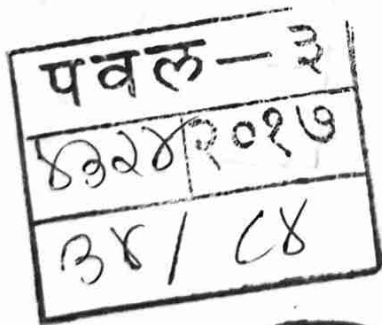 पवल - ३
४३२४ २०१७
३४ / ८४